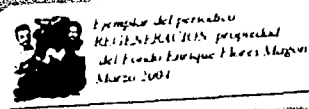 Ejemplar del periodico
REGENERACION propiedad
del Fondo Enrique Flores Magon
Marzo 2004